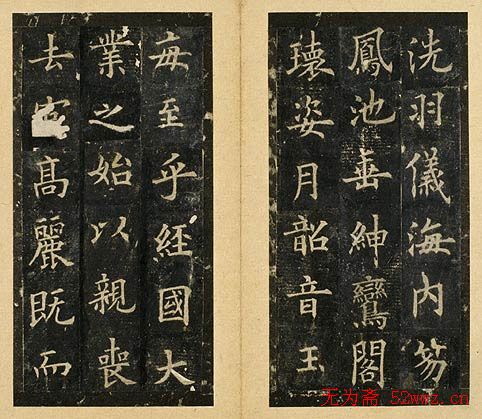 洗羽儀海内笏
鳳池垂紳鸞閣
瓌姿月韶音玉
毎至乎經國大
業之始以親喪
去高麗既而
无为斋.52wwz.cn